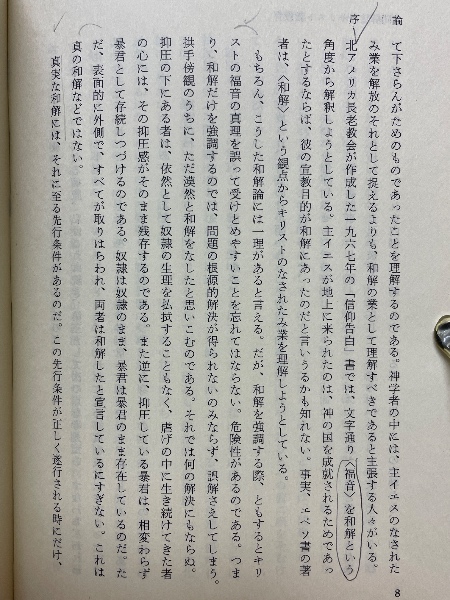 序論
て下さらんがためのものであったことを理解するのである。神学者の中には、主イエスのなされた
み業を解放のそれとして捉えるよりも、和解の業として理解すべきであると主張する人々がいる。
北アメリカ長老教会が作成した一九六七年の「信仰告白」書では、文字通り〈福音〉を和解という
角度から解釈しようとしている。主イエスが地上に来られたのは、神の国を成就されるためであっ
たとするならば、彼の宣教目的が和解にあったのだと言いうるかも知れない。事実、エペソ書の著
者は、〈和解〉という観点からキリストのなされたみ業を理解しようとしている。
もちろん、こうした和解論には一理があると言える。だが、和解を強調する際、ともするとキリ
ストの福音の真理を誤って受けとめやすいことを忘れてはならない。危険性があるのである。つま
り、和解だけを強調するのでは、問題の根源的解決が得られないのみならず、誤解さえしてしまう。
拱手傍観のうちに、ただ漠然と和解をなしたと思いこむのである。それでは何の解決にもならぬ。
抑圧の下にある者は、依然として奴隷の生理を払拭することもなく、虐げの中に生き続けてきた者
の心には、その抑圧感がそのまま残存するのである。また逆に、抑圧している暴君は、相変わらず
暴君として存続しつづけるのである。奴隷は奴隷のまま、暴君は暴君のまま存在しているのだ。た
だ、表面的に外側で、すべてが取りはらわれ、両者は和解したと宣言しているにすぎない。これは
真の和解などではない。
真実な和解には、それに至る先行条件があるのだ。この先行条件が正しく遂行される時にだけ、
8